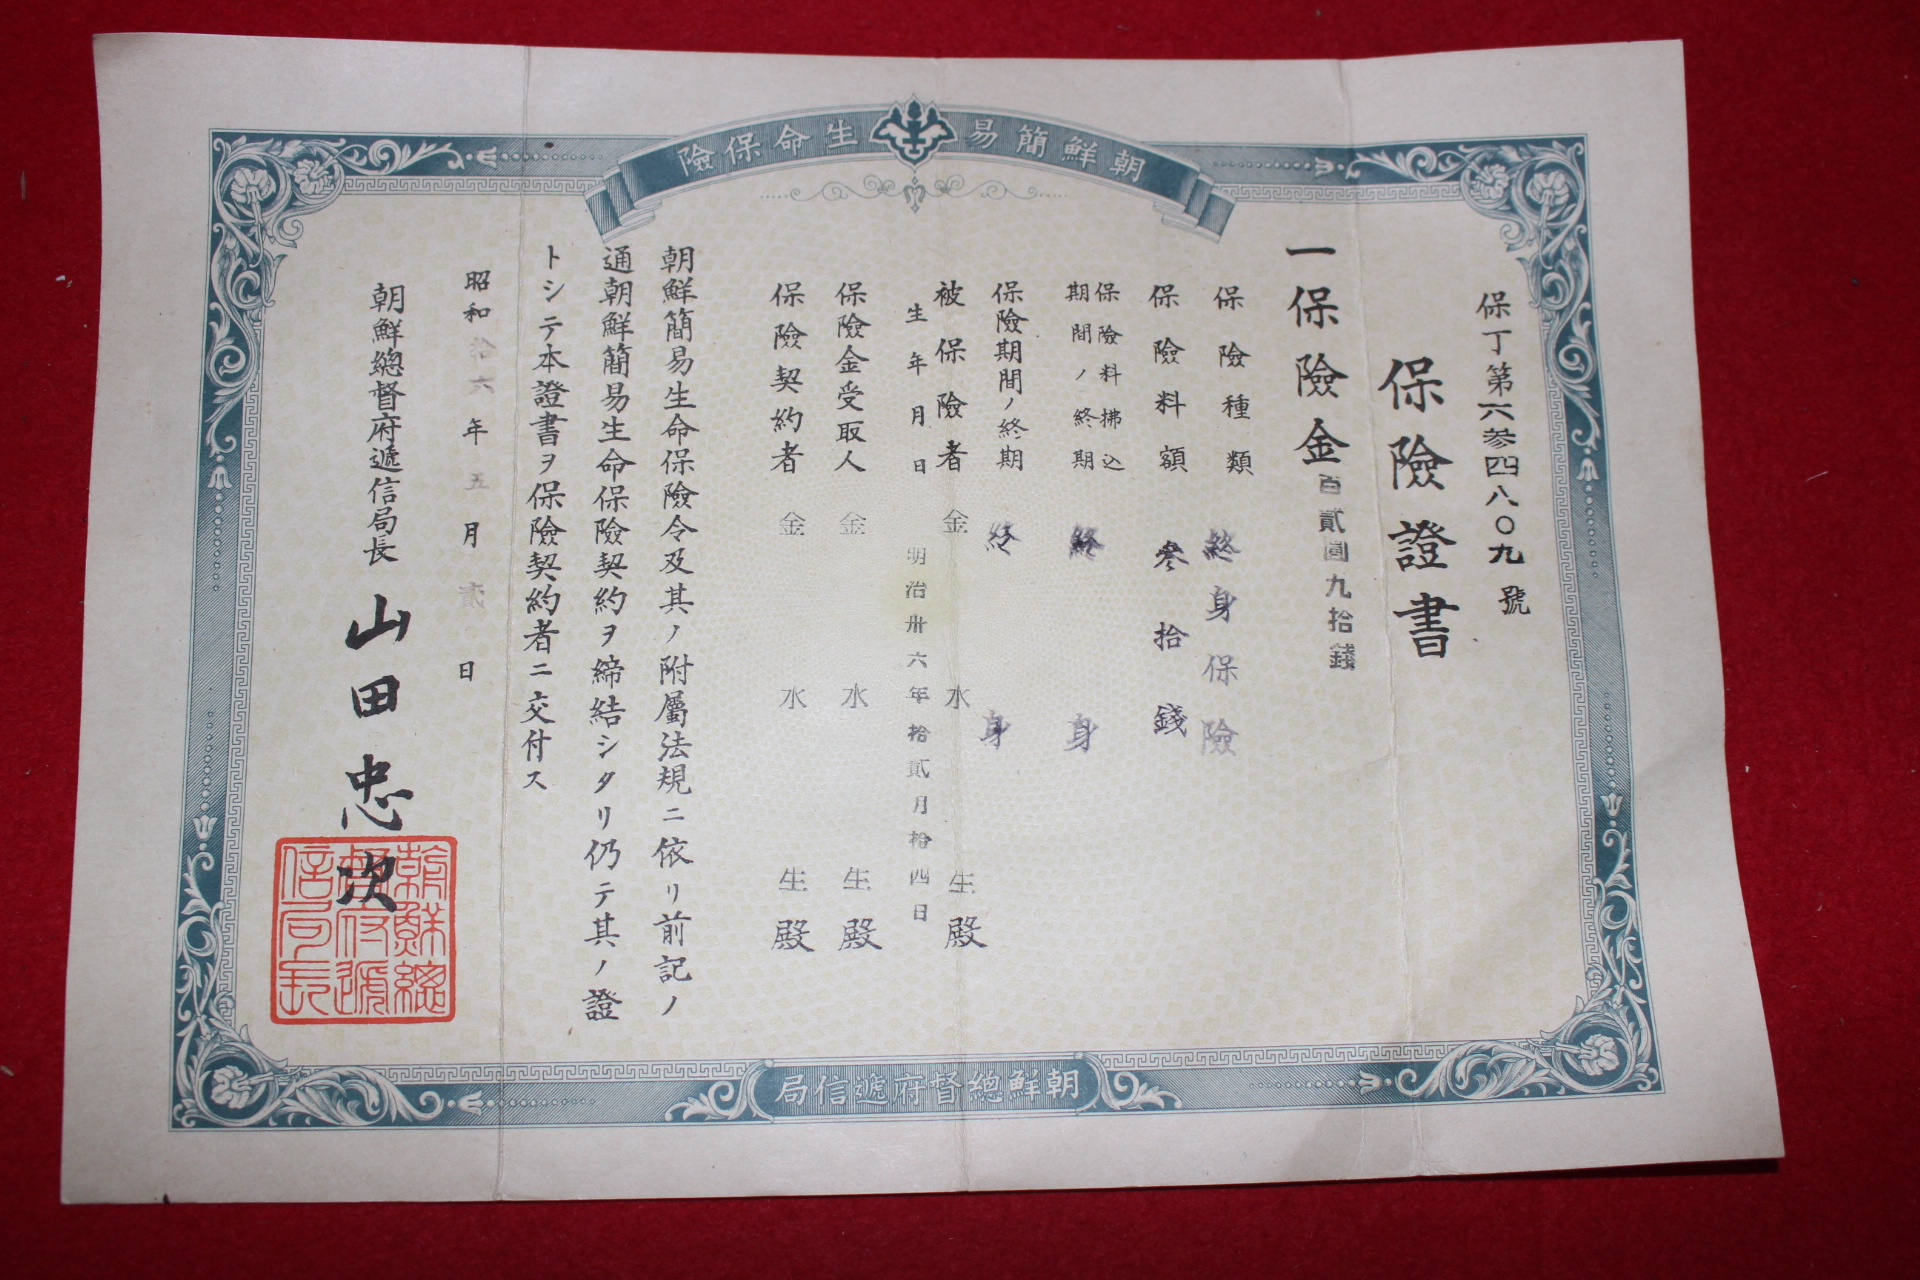 朝鮮簡易生命保險
保丁第六參四八〇九號
保險證書
一保險金百貳圓九拾錢
保險種類 終身保險
保險料額 參拾錢
保險料拂込期間ノ終期 終身
保險期間ノ終期 終身
被保險者 金水生殿
生年月日 明治卅六年拾貳月拾四日
保險金受取人 金水生殿
保險契約者 金水生殿
朝鮮簡易生命保險令及其ノ附屬法規ニ依リ前記ノ
通朝鮮簡易生命保險契約ヲ締結シタリ仍テ其ノ證
トシテ本證書ヲ保險契約者ニ交付ス
昭和拾六年五月貳日
朝鮮總督府遞信局長 山田忠次
朝鮮總
督府遞
信局長
朝鮮總督府遞信局